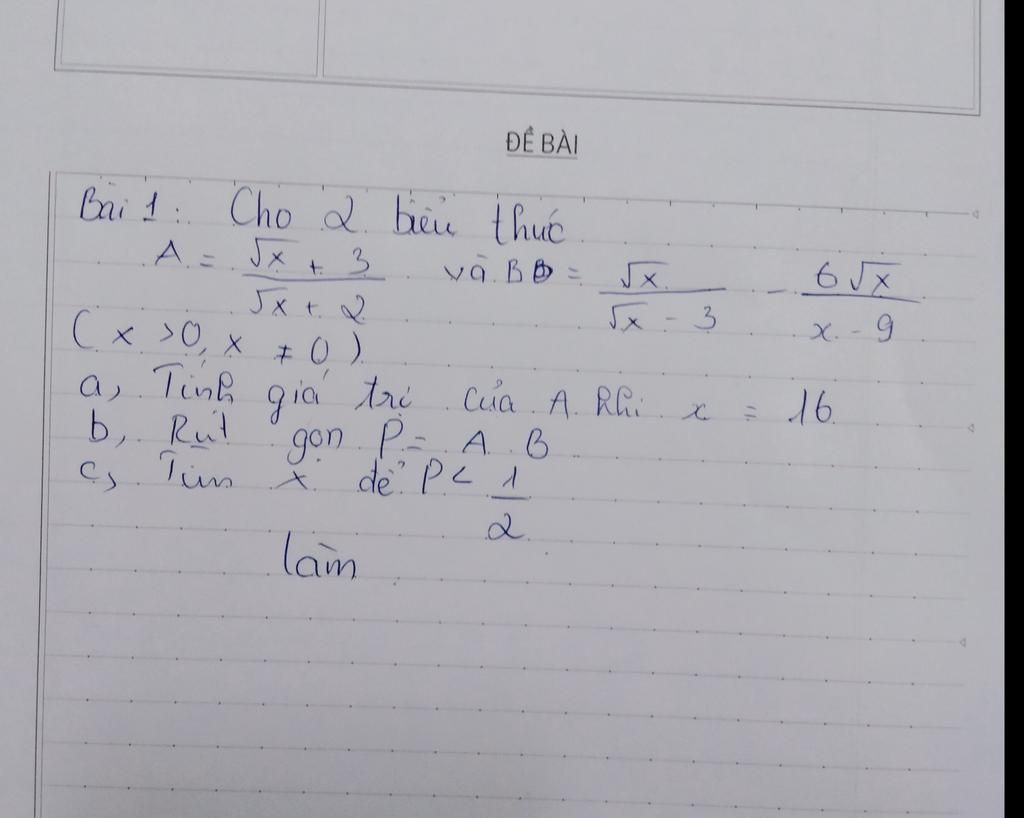 ĐỀ BÀI
Bài 1: Cho 2 biểu thức
A = √x + 3 / √x + 2 và B = √x / √x - 3 - 6√x / x - 9
(x >0, x ≠ 0)
a, Tính giá trị của A khi x = 16
b, Rút gọn P = A. B
c, Tìm x để P < 1/2
làm